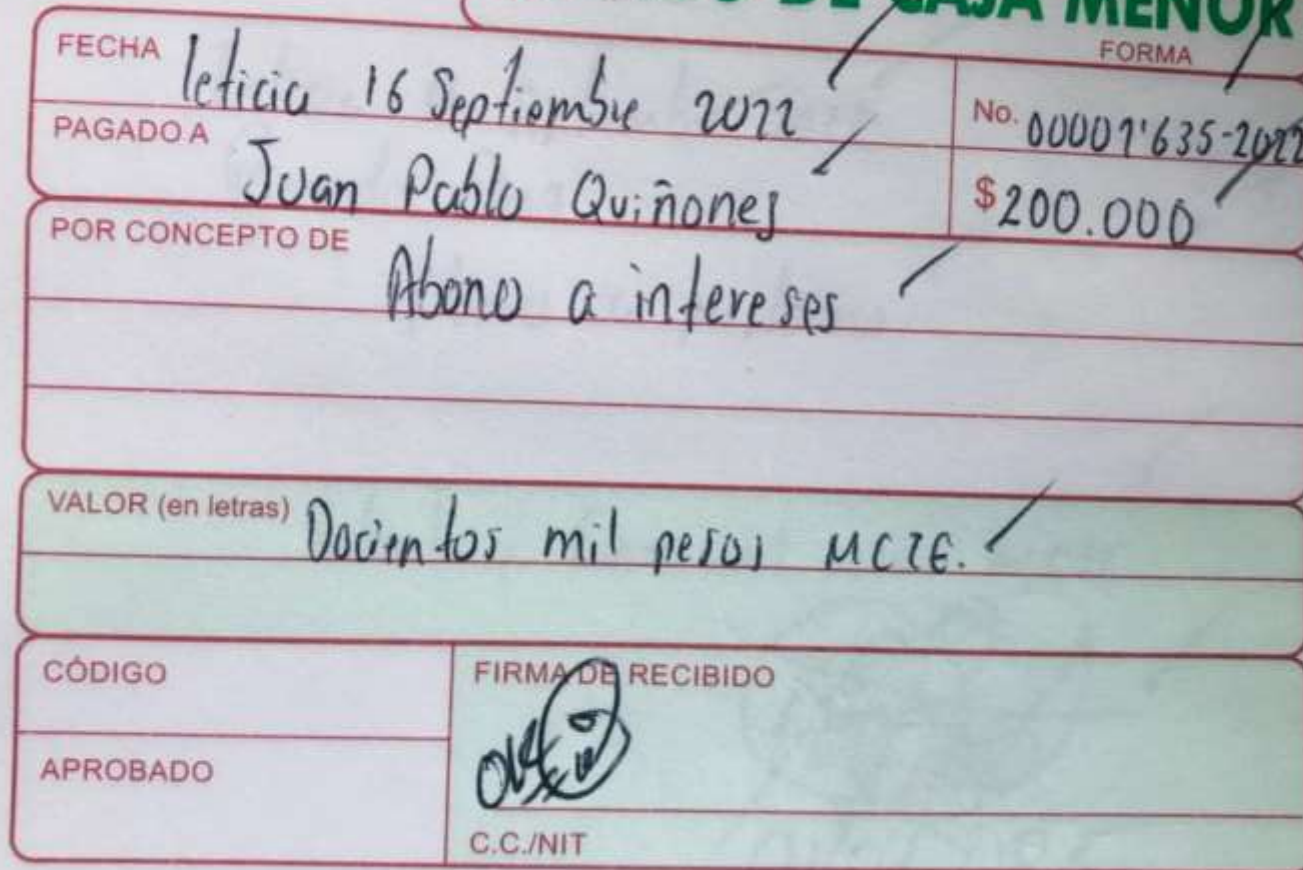 DE CAJA MENOR
FORMA
FECHA leticia 16 Septiembre 2022
No. 00001'635-2022
PAGADO A Juan Pablo Quiñones
$200.000
POR CONCEPTO DE Abono a intereses
VALOR (en letras) Docientos mil pesos MCTE.
CÓDIGO
FIRMA DE RECIBIDO
APROBADO
C.C./NIT